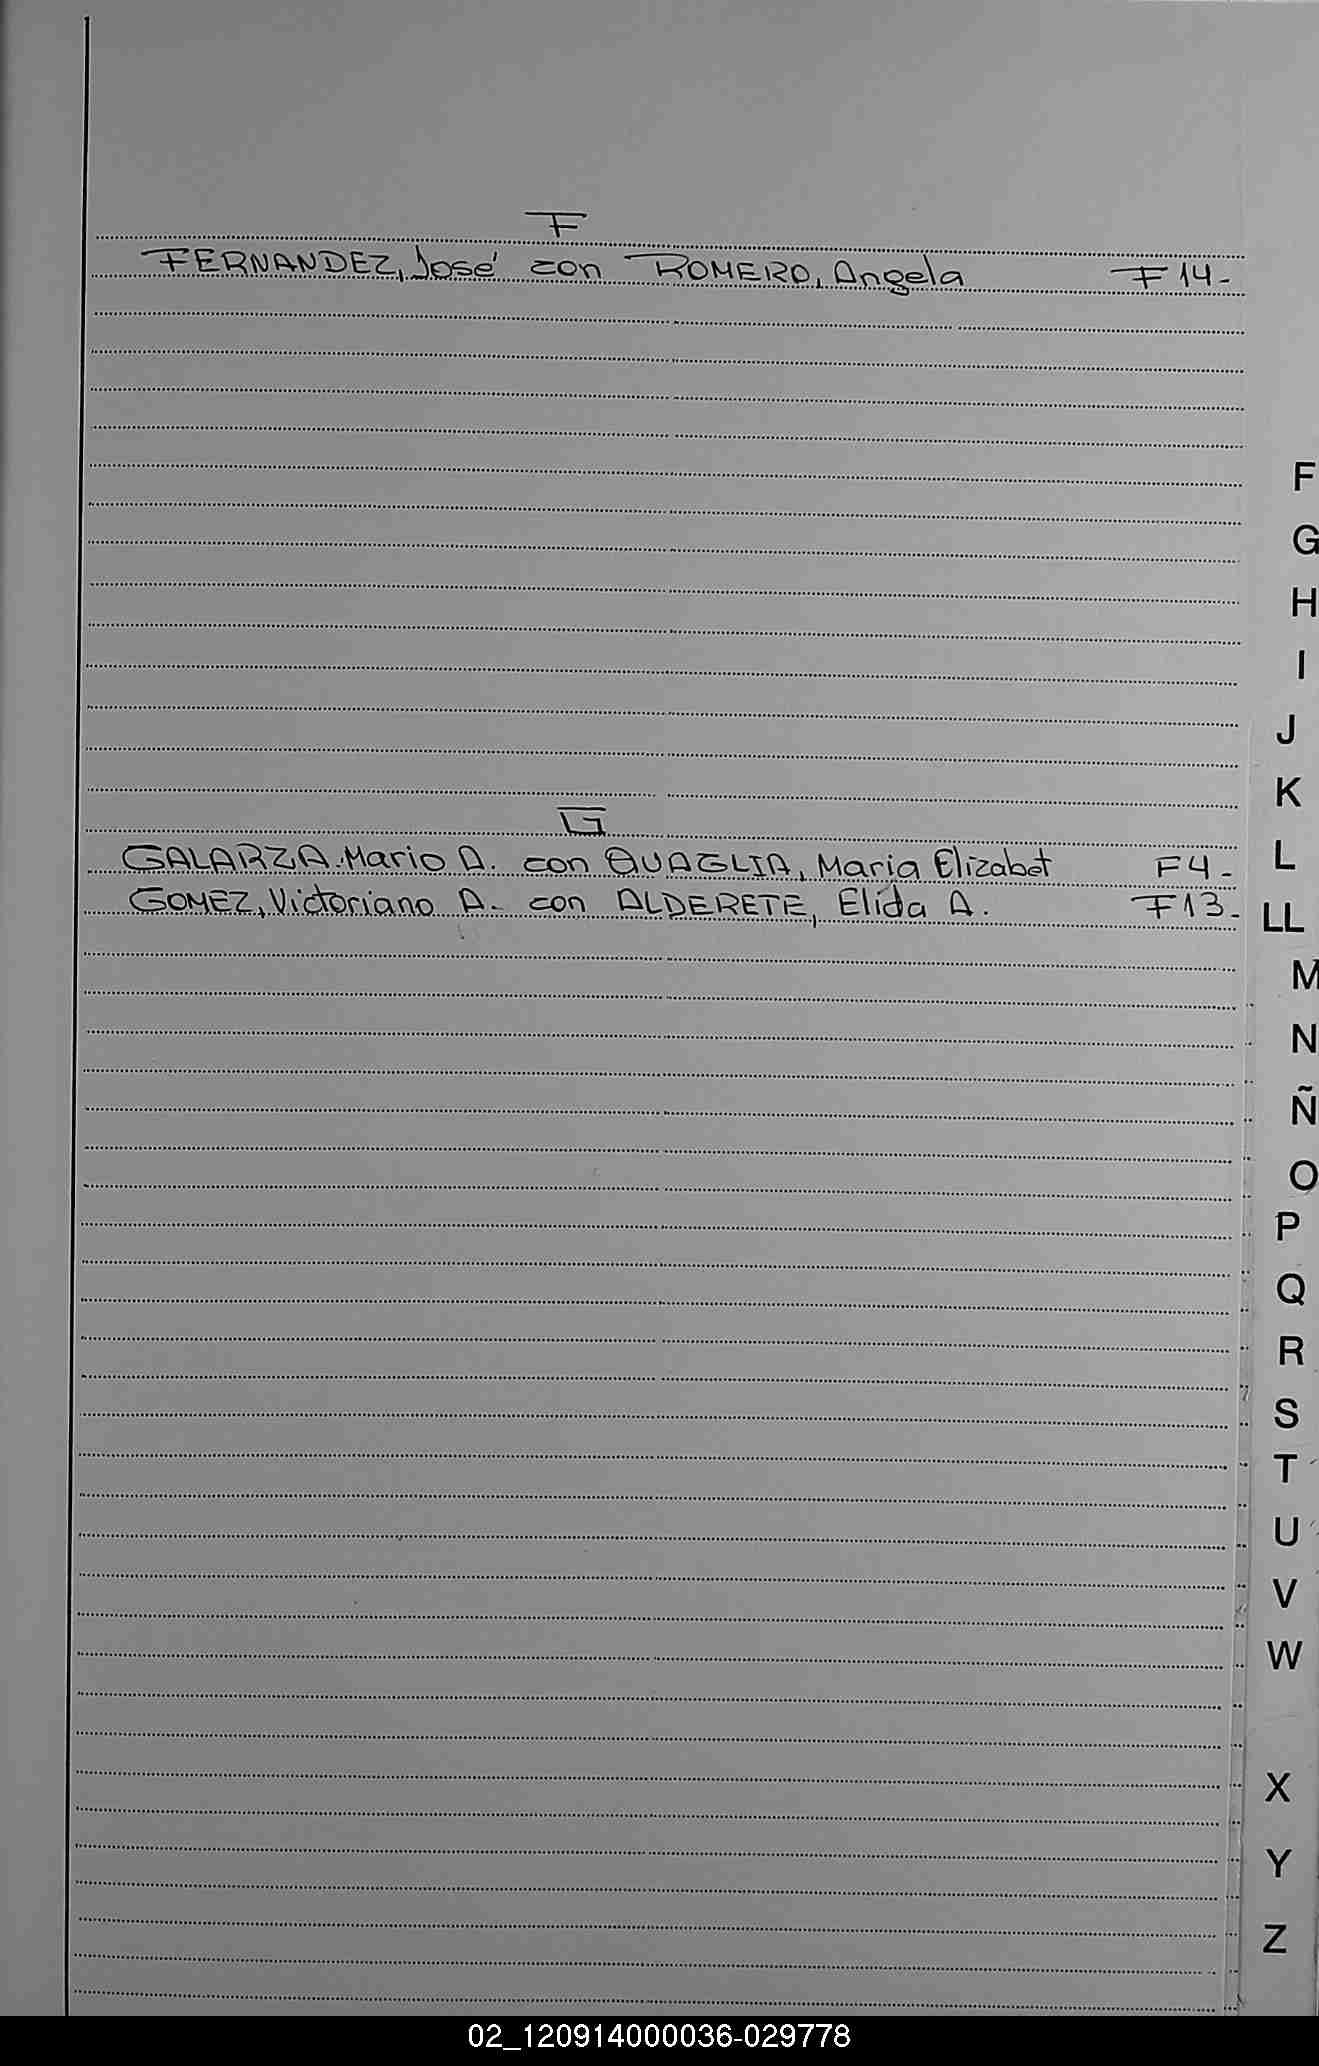 F
FERNANDEZ, José con ROMERO, Angela F14-
F
G
H
I
J
K
G
GALARZA Mario A. con QUAGLIA, Maria Elizabet F4-
L
GOMEZ, Victoriano A. con ALDERETE, Elída A. F13-
LL
M
N
Ñ
O
P
Q
R
S
T
U
V
W
X
Y
Z
02_120914000036-029778